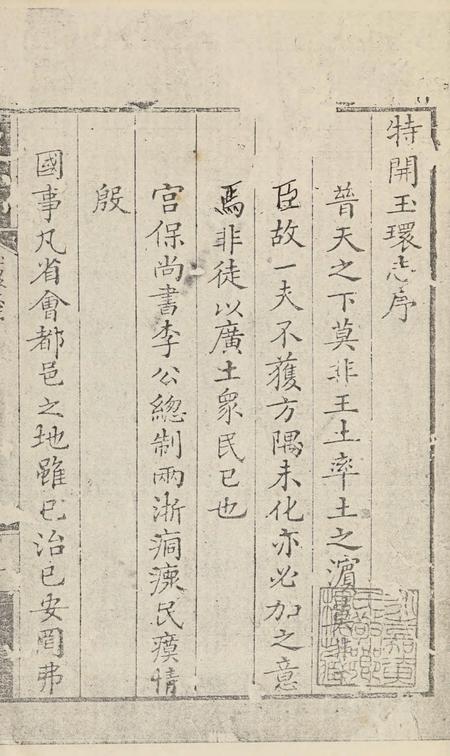 特開玉環志序
普天之下莫非王土率土之濱
臣故一夫不獲方隅未化亦必加之意
焉非徒以廣土衆民已也
宮保尚書李公總制兩浙痌瘝民瘼情
殷
國事凡省會都邑之地雖已治已安罔弗